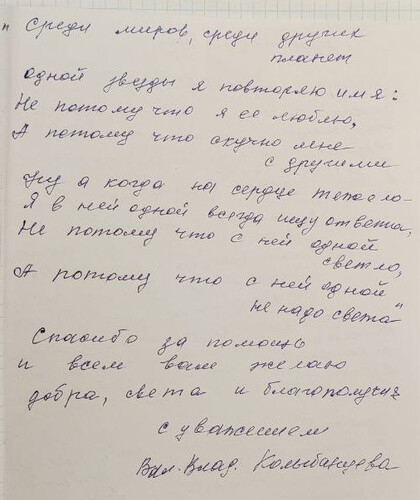 " Среди миров, среди других
планет
одной звезды я повторяю имя:
Не потому что я ее люблю,
А потому что скучно мне
с другими
Ну а когда на сердце тяжело -
Я в ней одной всегда ищу ответа,
Не потому что с ней одной
светло,
А потому что с ней одной
не надо света"
Спасибо за помощь
и всем вам желаю
добра, света и благополучия
с уважением
Вал. Влад. Колыбанцева